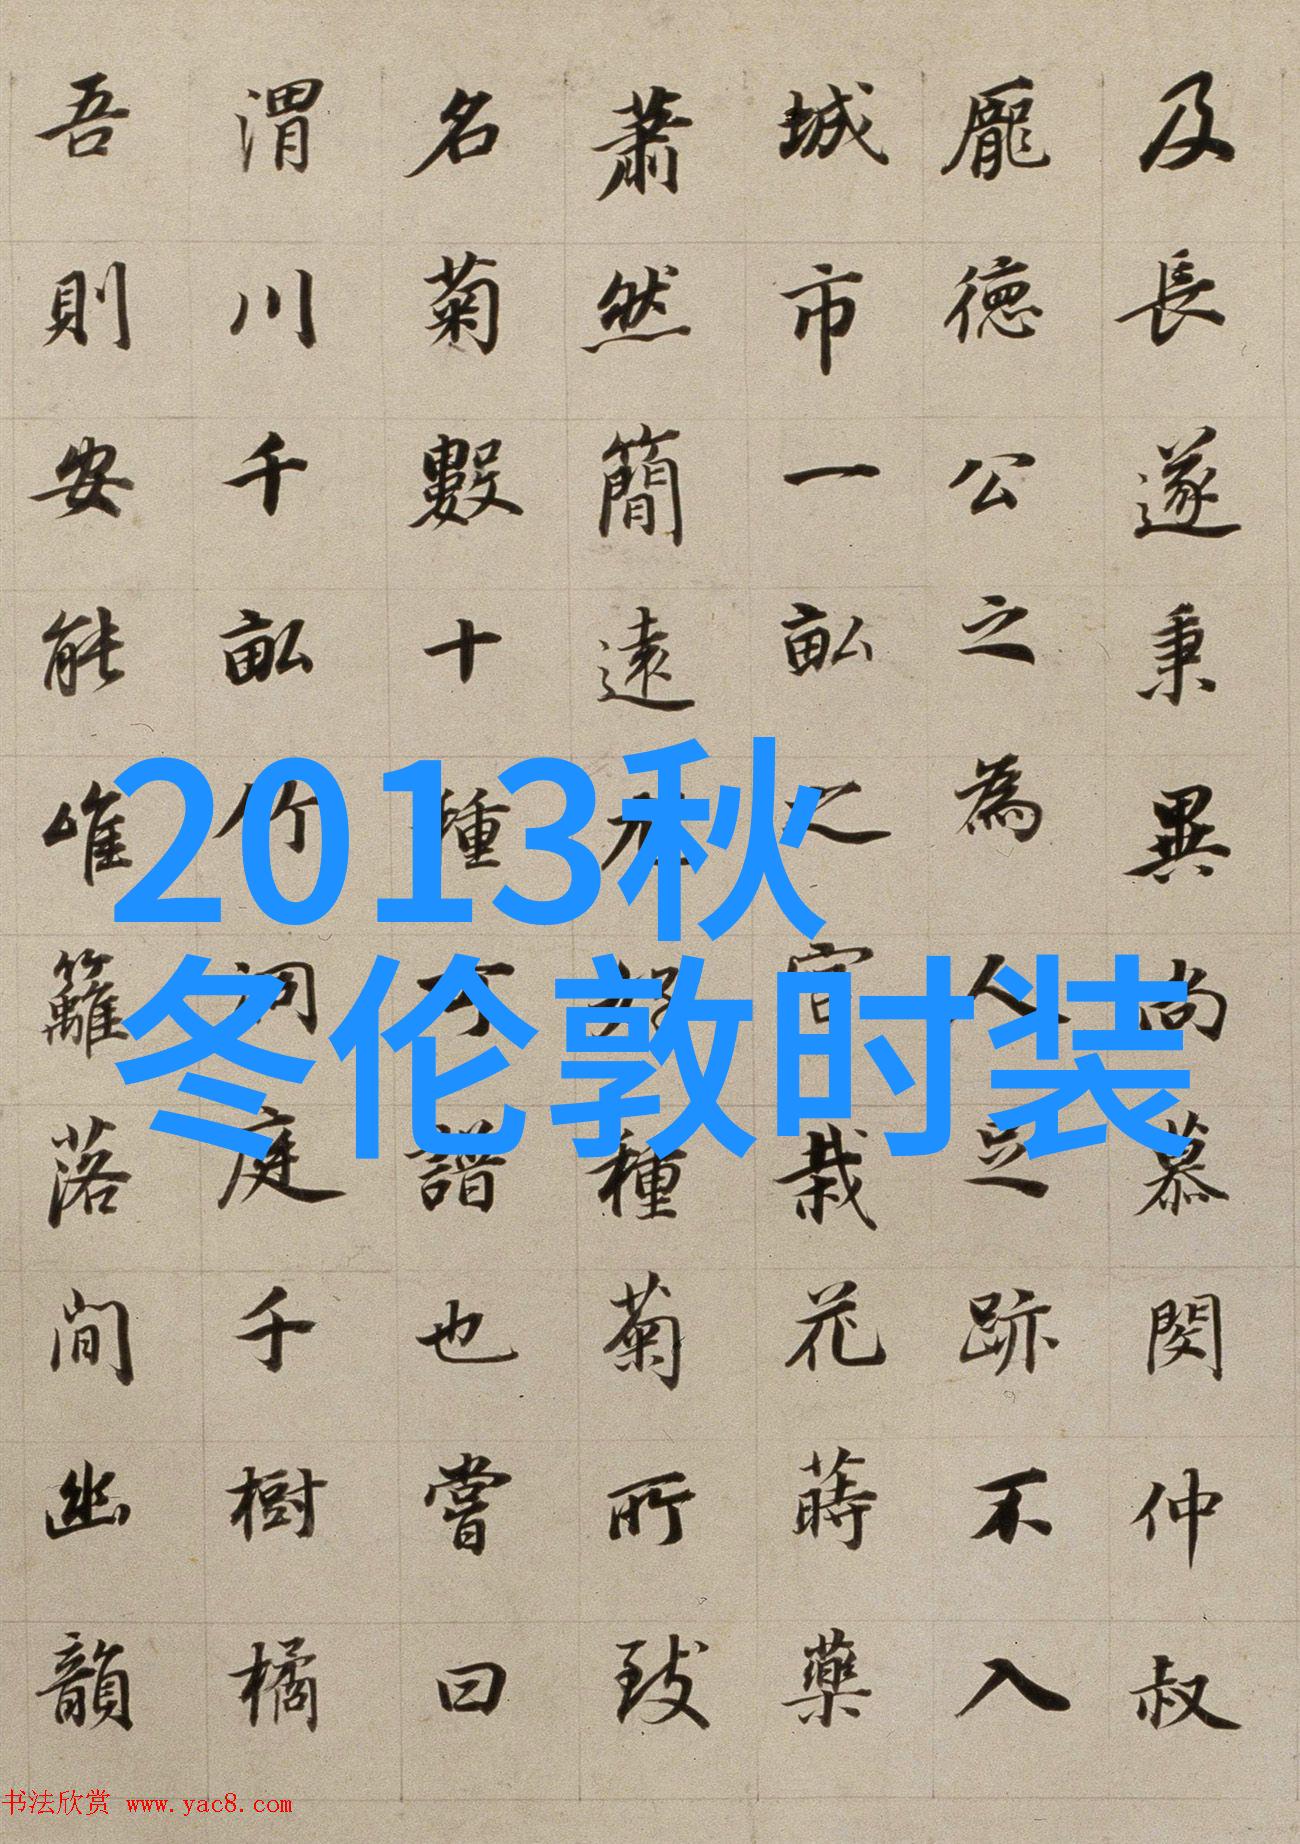 及長遂秉異尚慕閔仲叔
龐德公之為人足跡不入
城市一畝之宮栽花蒔藥
蕭然簡遠尤好種菊所致
名菊數十種可譜也嘗曰
渭川千畝竹洞庭千樹橘
吾則安能唯籬落間幽韻
2013秋
冬伦敦时装
书法欣赏 www.yac8.com